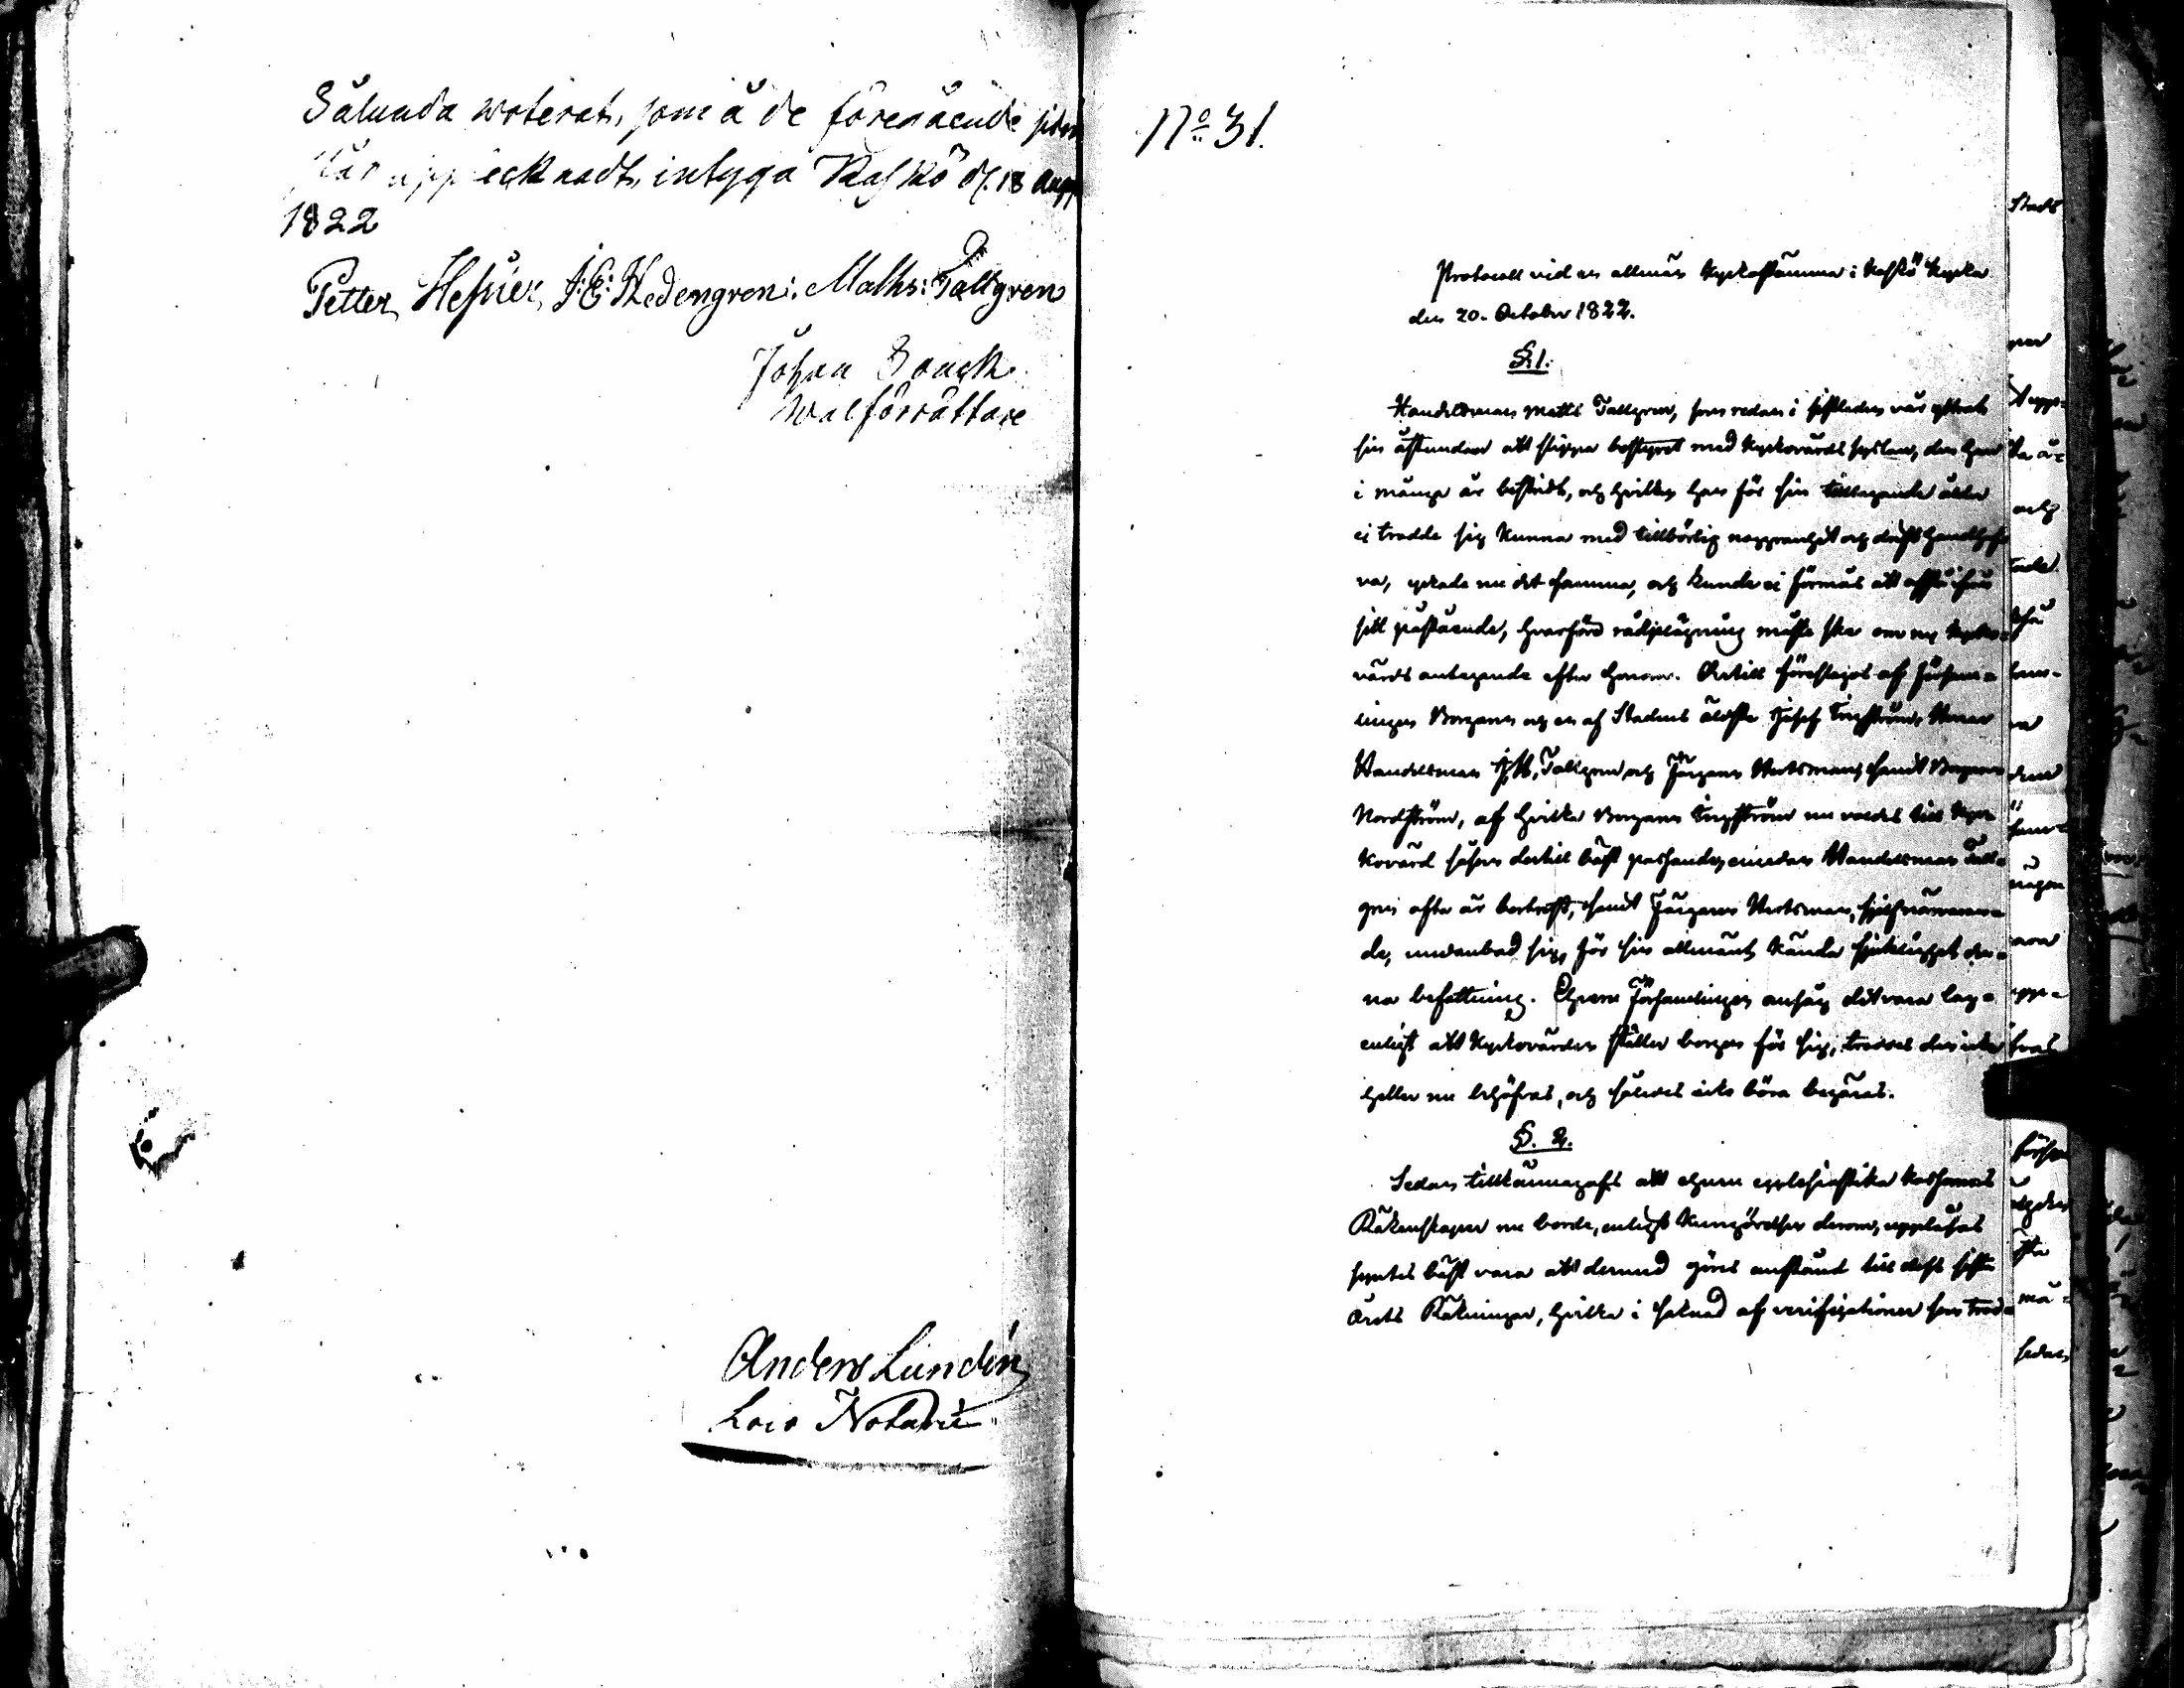 Sålunda voterat, som å de föreståeude sidor
står upptecknadt, intyga Kaskö d. 18 Aug
1822
Petter Hefner, J: E: Hedengren: Maths: Tallgren
Johan Bonck
Walförrättare
Anders Lundén
Loco Notarie
No 31.
Protocoll vid en allmän Kyrkostämma i Kaskö Kyrka
den 20. October 1822.
§. 1.
Handelsman Matts Tallgren, som redan i sistleden vår yttrat
sin åstundan att slippa bestyret med Kyrkovårds sysslan, den han
i många år bestridt, och hvilken han för sin tilltagande ålder
ej trodde sig kunna med tillbörlig noggranhet och drift handhaf-
va, yrkade nu det samma, och kunde ej förmås att afstå ifrån
sitt påstående, hvarföre rådplägning måste ske om ny Kyrko-
vårds antagande efter honom. Dertill föreslogos af Församlingen
lingen Borgaren och en af Stadens äldste Josef Engström,
Handelsman J. M. Tallgren och Färgaren Wertsman samt Borgaren
Nordström, af hvilka Borgaren Engström nu valdes till Kyr-
kovård såsom dertill bäst passande, emedan Handelsman Tall-
gren ofta är bortrest, samt Färgaren Wertsman, sjelf närvaran-
de, undanbad sig, för sin allmänt kända sjuklighet den-
na befattning. Ehuru Församlingen ansåg det vara lag-
enligt att Kyrkovården ställer borgen för sig, troddes den icke
heller nu behöfvas, och således icke böra begäras.
§. 2.
Sedan tillkännagafs att ehuru ecclesiastika kassornas
Räkenskaper nu borde, enligt Kungörelsen derom, uppläsas
syntes bäst vara att dermed göres anstånd till dess sista
Årets Räkningar, hvilka i saknad af verificationer som trod-